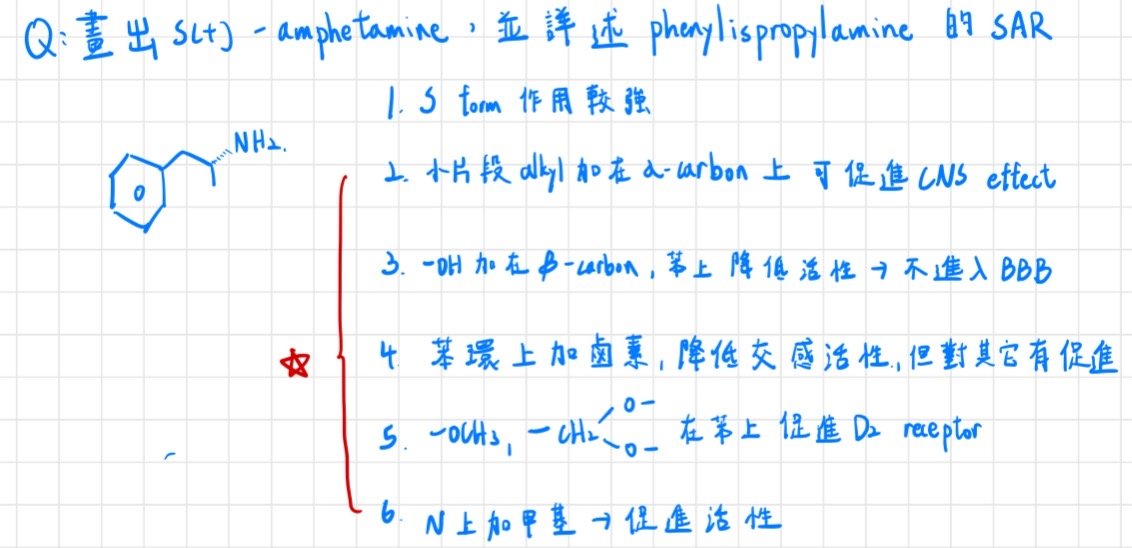 Q:畫出 S(+) - amphetamine,並詳述 phenylispropylamine 的 SAR
1. S form 作用較強
NH2.
2. 小片段 alkyl 加在 α-carbon 上 可促進 CNS effect
3. -OH 加在 β-carbon,苯上 降低活性 → 不進入 BBB
4. 苯環上加鹵素,降低交感活性,但對其它有促進
5. -OCH3, -CH2<O- O- 在苯上 促進 D2 receptor
6. N上加甲基 → 促進活性